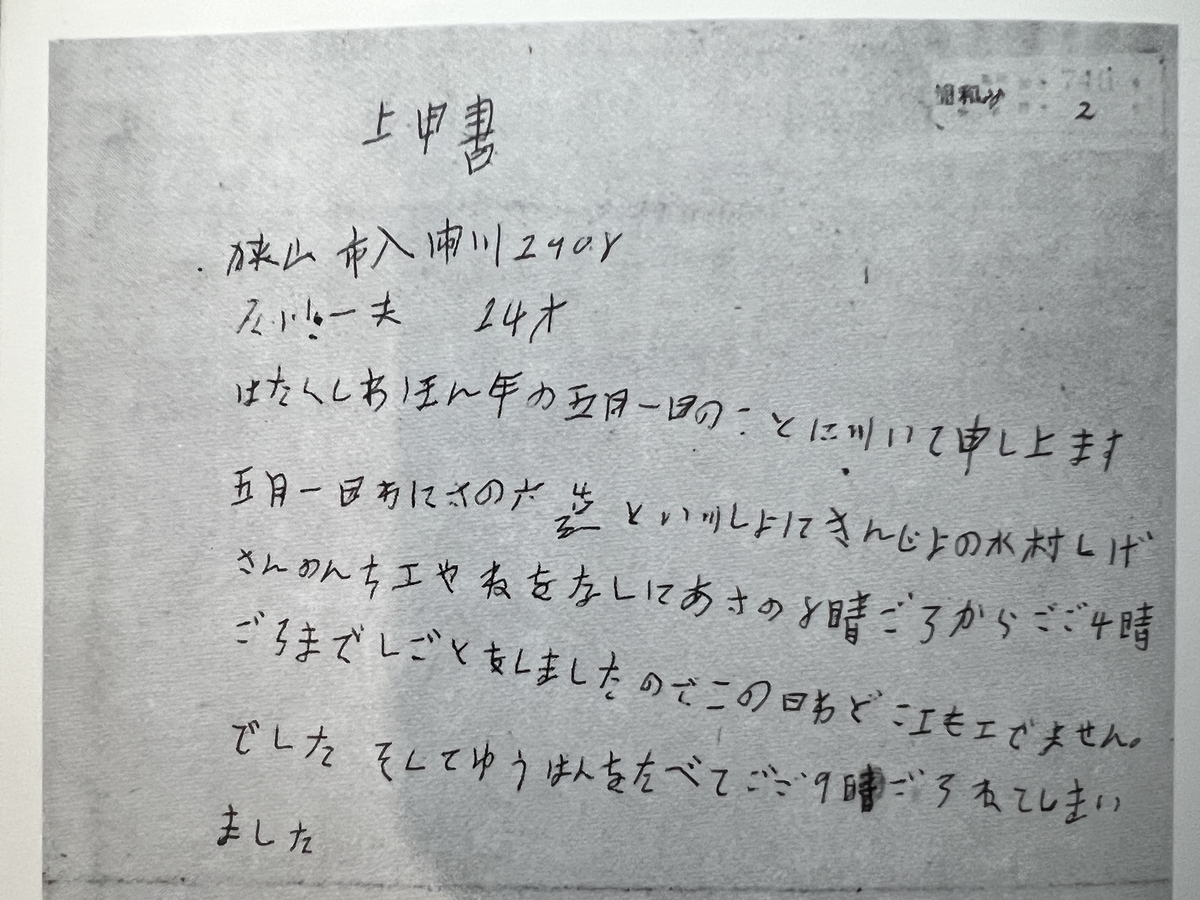 上申書
2
狭山市入間川2908
石川一夫 24才
はたくしわほん年の五月一日のことに川いて申し上ます
五月一日わにさの六造といツしよにきんじよの水村しげ
さんのんちエやねをなしにあさの8晴ごろからごご4晴
ごろまでしごとをしましたのでこの日わどこエもエでません。
でした そしてゆうはんをたべてごご9晴ごろねてしまい
ました